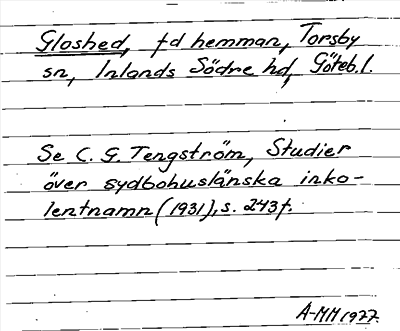 Gloshed, fd hemman, Torsby
sn, Inlands Södre hd, Göteb. l.
Se C. G. Tengström, Studier
över sydbohuslänska inko-
lentnamn (1931), s. 243f.
A-MM 1977.